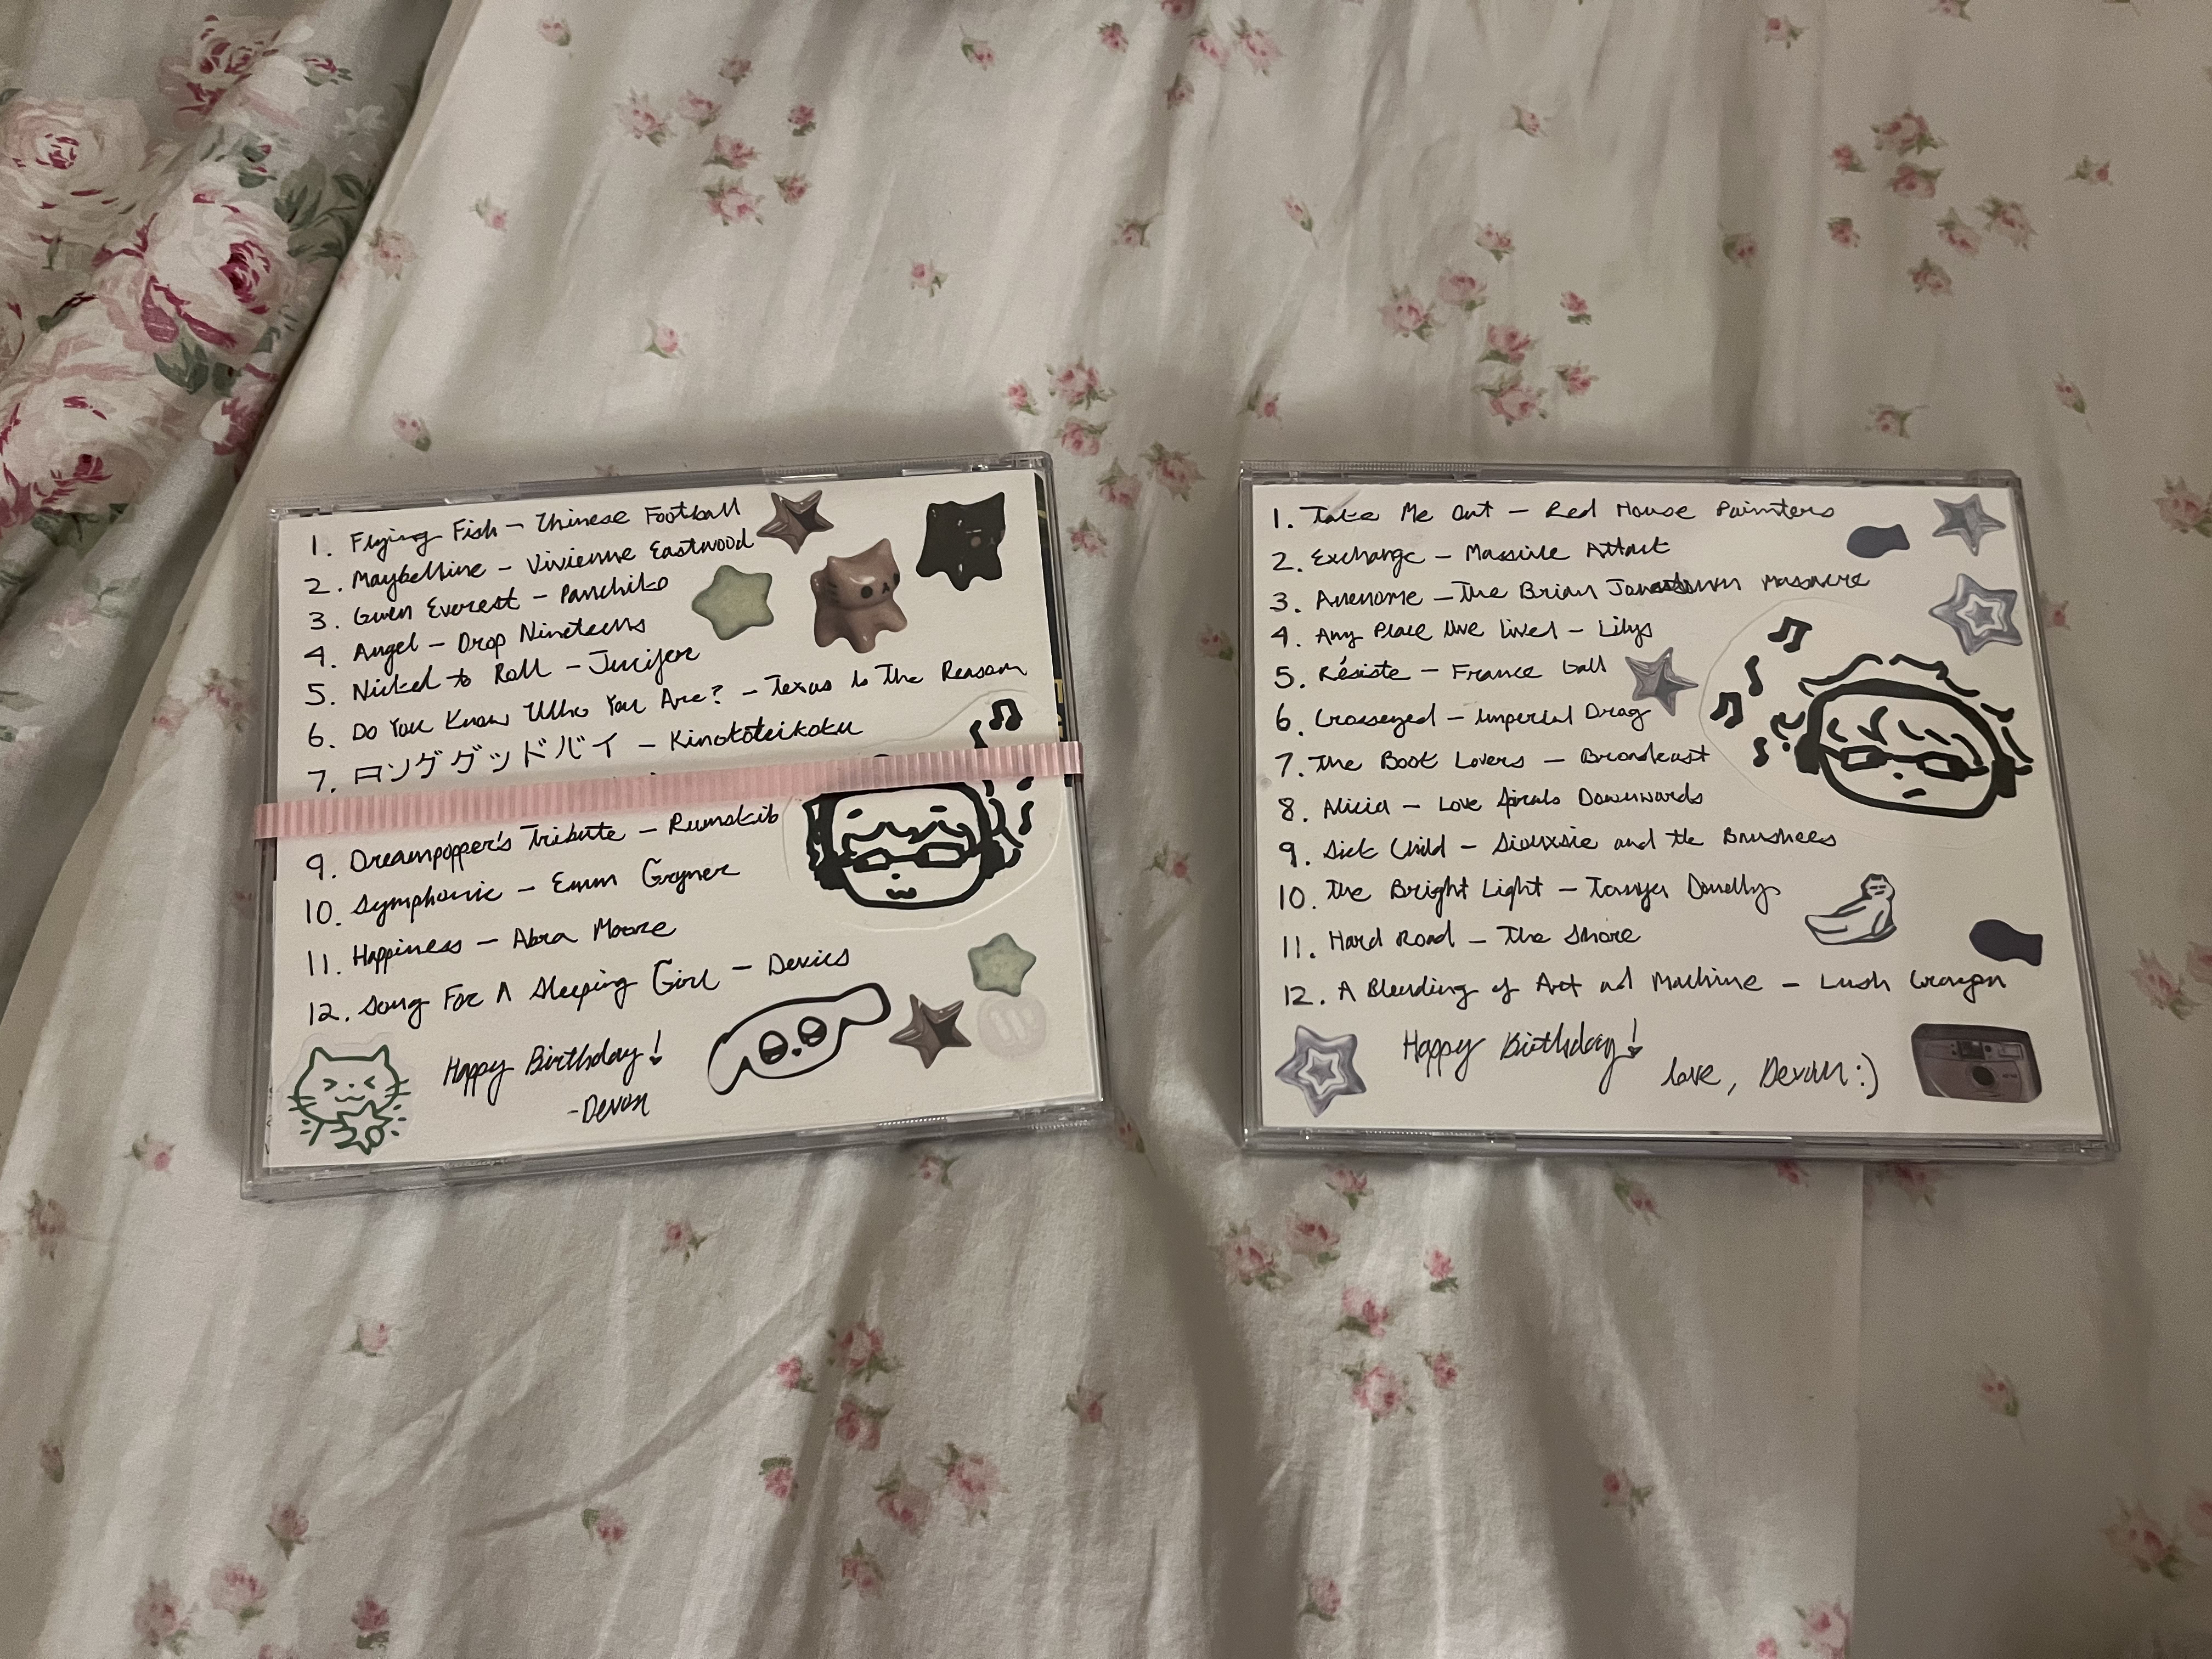 1. Flying Fish - Chinese Football
2. Maybelline - Vivienne Eastwood
3. Gwen Everest - Panchiko
4. Angel - Drop Nineteens
5. Nickel to Roll - Jucifer
6. Do You Know Who You Are? - Texas Is The Reason
7. ロンググッドバイ - Kinokoteikoku
9. Dreampopper's Tribute - Rumskib
10. Symphonic - Emm Gryner
11. Happiness - Abra Moore
12. Song For A Sleeping Girl - Devics
Happy Birthday!
-Devon
20
1. Take Me Out - Red House Painters
2. Exchange - Massive Attack
3. Anenome - The Brian Jonestown Massacre
4. Any Place I've Lived - Lilys
5. Résiste - France Gall
6. Crosseyed - Imperial Drag
7. The Book Lovers - Broadcast
8. Alicia - Love Spirals Downwards
9. Sick Child - Siouxsie and the Banshees
10. The Bright Light - Tanya Donelly
11. Hard Road - The Shore
12. A Blending of Art and Machine - Lush
Happy Birthday!
love, Devon :)